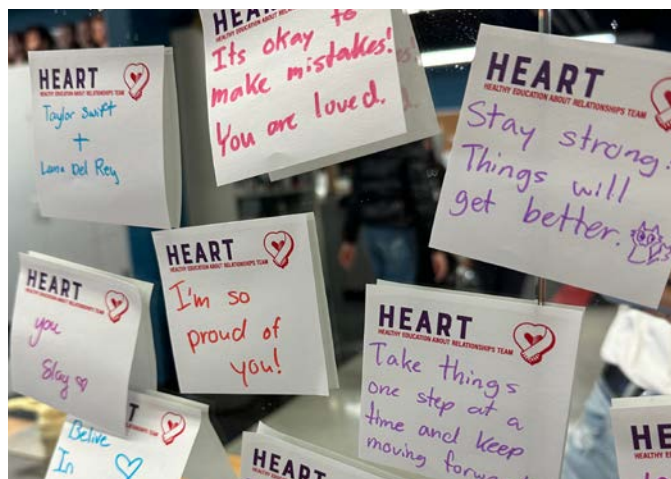 HEART
HEALTHY EDUCATION ABOUT RELATIONSHIPS TEAM
Taylor Swift
+
Lana Del Rey
HEART
Its okay to
make mistakes!
You are loved.
HEART
HEALTHY EDUCATION ABOUT RELATIONSHIPS TEAM
Stay strong.
Things will
get better.
HEART
HEALTHY EDUCATION ABOUT RELATIONSHIPS TEAM
you
Slay
HEART
HEALTHY EDUCATION ABOUT RELATIONSHIPS TEAM
I'm so
proud of
you!
HEART
HEALTHY EDUCATION ABOUT RELATIONSHIPS TEAM
Take things
one step at a
time and keep
moving forwa
T
TIONSHIPS TEAM
Belive
In
HEART
HE
HEALTHY ED